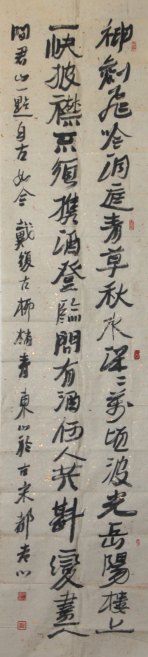 袖劍飛吟洞庭青草秋水深〻萬頃波光岳陽樓上
一快披襟不須攜酒登臨問有酒何人共斟變盡人
間君山一點自古如今 戴復古柳梢青 東山於古宋都